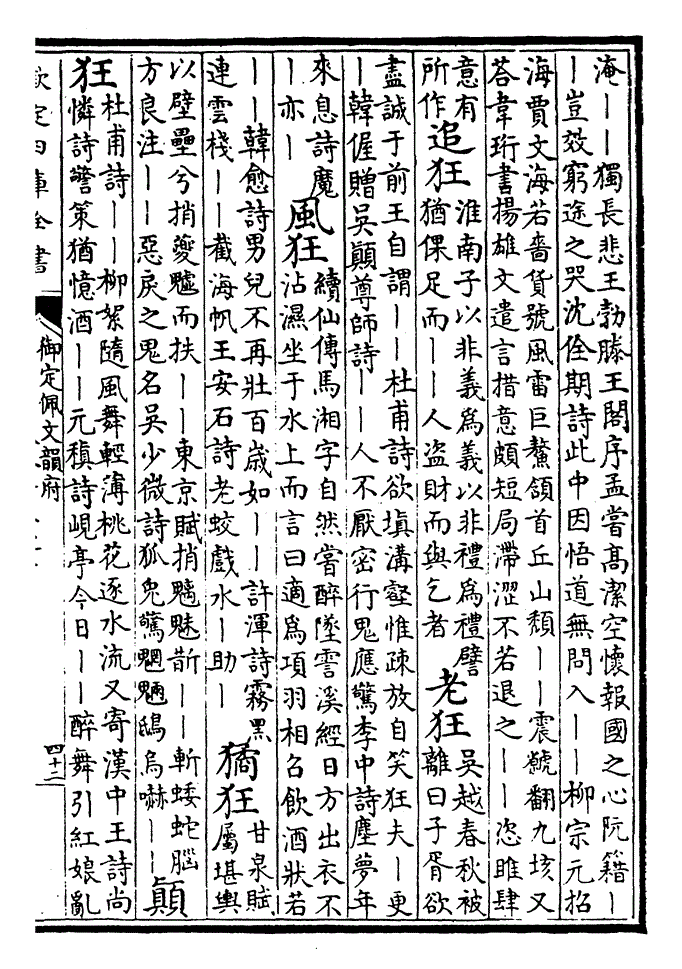 淹——獨長悲王勃滕王閣序孟嘗高潔空懷報國之心阮籍—
—豈效窮途之哭沈佺期詩此中因悟道無問入——柳宗元招
海賈文海若嗇貨號風雷巨鰲頷首丘山頹——震虩翻九垓又
荅韋珩書揚雄文遣言措意頗短局滯澀不若退之——恣睢肆
意有
所作
追狂
淮南子以非義爲義以非禮爲禮譬
猶倮足而——人盗財而與乞者
老狂
吳越春秋被
離曰子胥欲
盡誠于前王自謂——杜甫詩欲填溝壑惟疎放自笑狂夫—更
—韓偓贈吳顛尊師詩——人不厭密行鬼應驚李中詩塵夢年
來息詩魔
—亦—
風狂
續仙傳馬湘字自然嘗醉墜霅溪經日方出衣不
沾濕坐于水上而言曰適爲項羽相召飲酒狀若
——韓愈詩男兒不再壯百歳如——許渾詩霧黑
連雲棧——截海帆王安石詩老蛟戲水—助—
獝狂
甘泉賦
屬堪輿
以壁壘兮捎夔魖而抶——東京賦捎魑魅斮——斬蜲蛇腦
方良注——惡戾之鬼名吳少微詩狐兔驚魍魎鴟烏嚇——
顛
狂
杜甫詩——柳絮隨風舞輕薄桃花逐水流又寄漢中王詩尚
憐詩警策猶憶酒——元稹詩峴亭今日——醉舞引紅娘亂
欽定四庫全書
御定佩文韻府
四十三